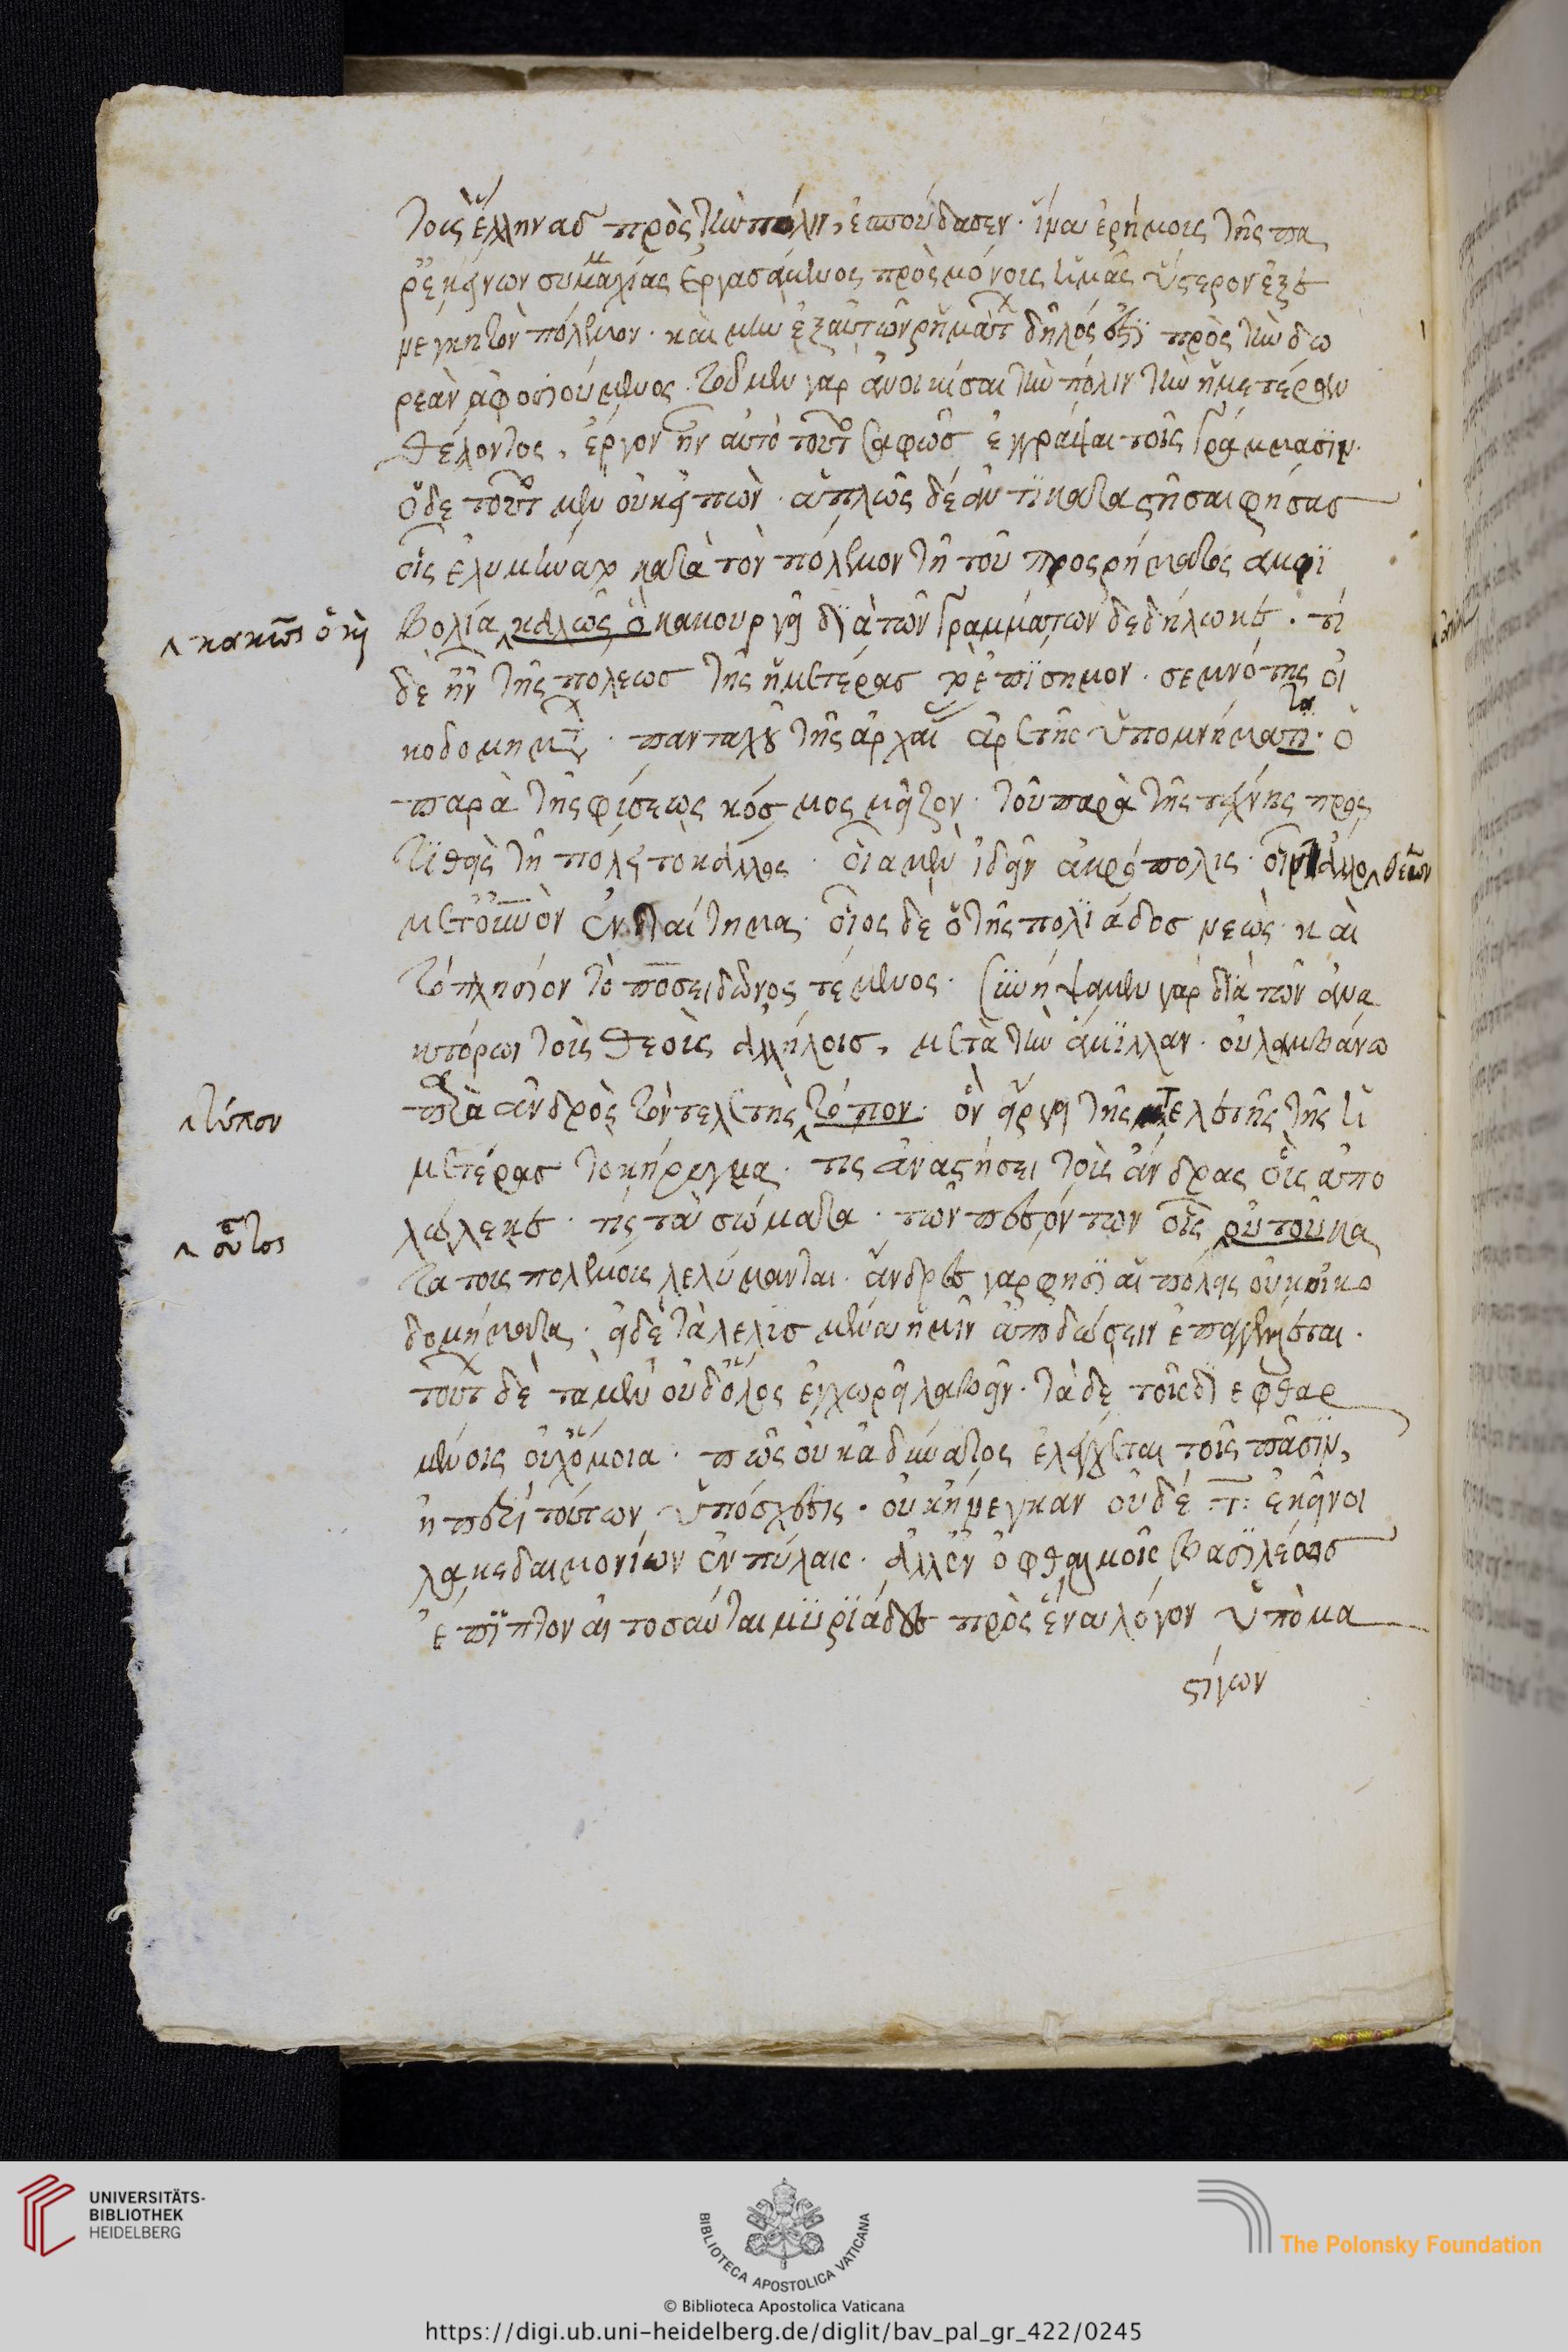 τοὺς ἕλληνας πρὸς τὴν πόλιν, ἐσπούδασεν. ἵνα ἐρήμους τῆς πα
ρ' ἐκείνων συμμαχίας ἐργασάμενος πρὸς μόνους ὑμᾶς ὕστερον ἐξε
νέγκη τὸν πόλεμον. καὶ μὴν ἐξ αὐτῶν ῥημάτων δῆλός ἐστι πρὸς τὴν δω
ρεὰν ἀφοσιούμενος. τοῦ μὲν γὰρ ἀνοικίσαι τὴν πόλιν τὴν ἡμετέραν
θέλοντος, ἔργον ἦν αὐτὸ τοῦτο σαφῶς ἐγγράψαι τοῖς γράμμασιν.
ὁ δὲ τοῦτο μὲν οὐκ εἰπὼν. ἁπλῶς δὲ ἀντικαταστῆσαι φήσας
οἷς ἐλυμήνατο κατὰ τὸν πόλεμον τῇ τοῦ προσρήματος ἀμφι
βολία καλῶς ὃ κακουργεῖ διὰ τῶν γραμμάτων δεδήλωκε. τί
^ κακῶς ὃ καὶ
δὲ ἦν τῆς πόλεως τῆς ἡμετέρας τὸ ἐπίσημον. σεμνότης οἰ
κοδομημάτων. πανταχοῦ τῆς ἀρχαίας ἀρετῆς ὑπομνήματι. ὁ
τα
παρὰ τῆς φύσεως κόσμος μεῖζον τοῦ παρὰ τῆς τέχνης προσ
τιθεὶς τῇ πόλει τὸ κάλλος. οἵα μὲν ἰδεῖν ἀκρόπολις.
ἐνδιαίτημα. οἷος δὲ ὁ τῆς πολιάδος νεὼς καὶ
τὸ πλησίον τὸ ποσειδῶνος τέμενος. συνήψαμεν γὰρ διὰ τῶν ἀνα
κτόρων τοὺς θεοὺς ἀλλήλοις, μετὰ τὴν ἅμιλλαν. οὐ λαμβάνω
παρὰ ἀνδρὸς τὸν τελετῆς τόπον. ὃν εἴργει τῆς τελετῆς τῆς ἡ
^ τύπον
μετέρας τὸ κήρυγμα. τίς ἀναστήσει τοὺς ἄνδρας οὓς ἀπο
λώλεκε. τίς τὰ σώματα. τῶν πεσόντων οἷς οὐ τοῦ κα
^ οὗτος
τὰ τοὺς πολέμους λελύμανται. ἄνδρες γάρ φησιν αἱ πόλεις οὐκ οἰκο
δομήματα. εἰ δὲ τὰ λελυσμένα ἡμῖν ἀποδώσειν ἐπαγγέλλεται.
τούτων δὲ τὰ μὲν οὐδ' ὅλως ἐγχωρεῖ λαβεῖν. τὰ δὲ τοῖς διεφθαρ
μένοις οὐχ ὅμοια. πῶς οὐκ ἀδύνατος ἐλέγχεται τοῖς πᾶσιν,
ἡ περὶ τούτων ὑπόσχεσις. οὐκ ἤνεγκαν οὐδέ τι ἐκεῖνοι
λακεδαιμονίων ἐν πύλαις. ἀλλ' ἐν ὀφθαλμοῖς βασιλέως
ἔπιπτον αἱ τοσαῦται μυριάδες πρὸς ἕνα λόγον ὑπὸ μα
στίγων
UNIVERSITÄTS-
BIBLIOTHEK
HEIDELBERG
BIBLIOTECA APOSTOLICA VATICANA
The Polonsky Foundation
© Biblioteca Apostolica Vaticana
https://digi.ub.uni-heidelberg.de/diglit/bav_pal_gr_422/0245